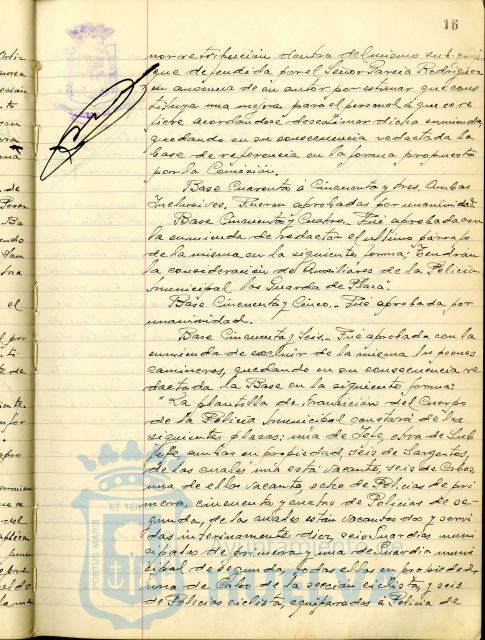 16
nor retribución dentro del mismo sub-grupo
que defendida por el Señor García Rodríguez
en ausencia de su autor por estimar que cons
tituye una mejora para el personal á que se re
fiere acordándose desestimar dicha enmienda
quedando en su consecuencia redactada la
base de referencia en la forma propuesta
por la Comisión.
Base Cuarenta á Cincuenta y tres. Ambas
Inclusives. Fueron aprobadas por unanimidad.
Base Cincuenta y Cuatro. Fué aprobada con
la enmienda de redactar el ultimo párrafo
de la misma en la siguiente forma; "Tendran
la consideración de Auxiliares de la Policia
Municipal los Guarda de Plaza".
Base Cincuenta y Cinco.- Fué aprobada por
unanimidad.
Base Cincuenta y Seis.- Fué aprobada con la
enmienda de excluir de la misma los peones
camineros, quedando en su consecuencia re
dactada la Base en la siguiente forma:
"La plantilla de transición del Cuerpo
de la Policia Municipal constará de las
siguientes plazas; una de Jefe, otra de Sub
Jefe, ambas en propiedad, seis de Sargentos,
de las cuales una está vacante, seis de Cabos
una de ellas vacante, ocho de Policias de pri
mera, cincuenta y cuatro de Policias de se
gunda, de las cuales están vacantes dos y servi
das interinamente diez, seis Guardias muni
cipales de primera y una de Guardia muni
cipal de segunda, todos ellos en propiedad;
una de Cabo de la sección ciclista, y seis
de Policias ciclistas, equiparados á Policia de
PORTUS MARIS
ET TERRAE
Ayuntamiento de
HUELVA